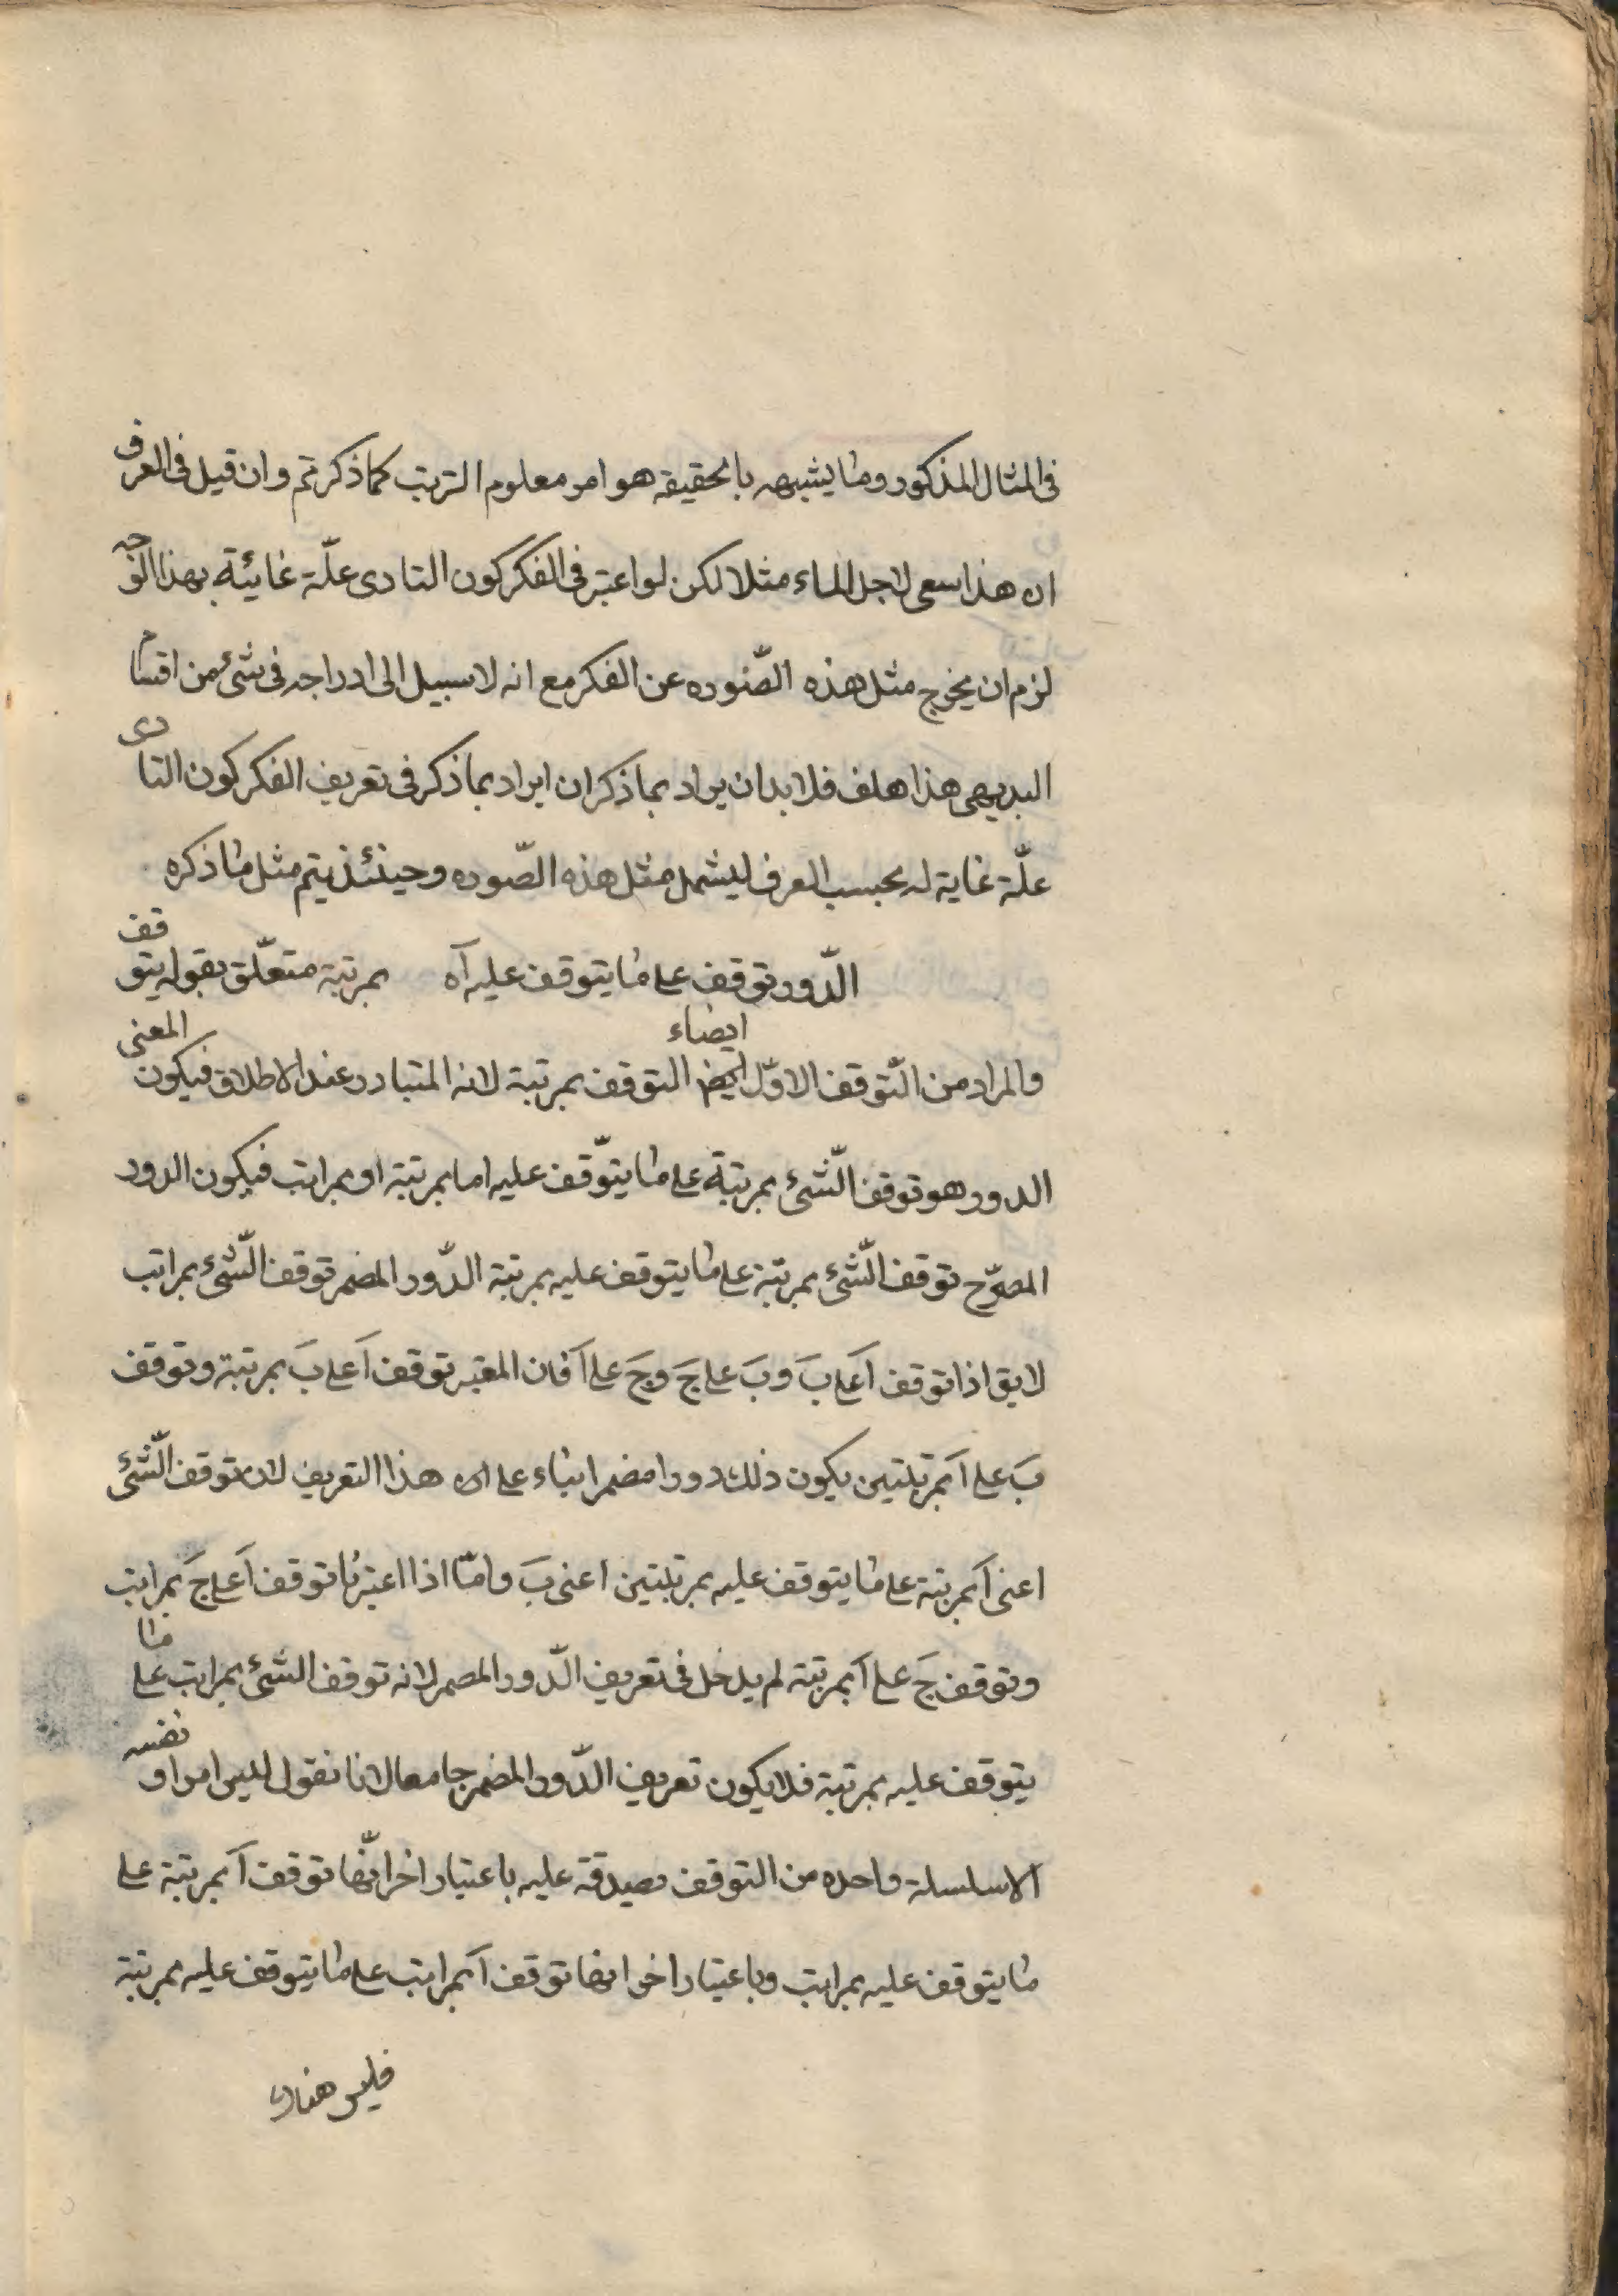 فى المثال المذكور وما يشبهه بالحقيقة هو امر معلوم الترتب كما ذكرتم وان قيل فى العرف
ان هذا سعى لاجل الماء مثلا لكن لو اعتبر فى الفكر كون التادى علّة غائية بهذا الوجه
لزم ان يخرج مثل هذه الصّوره عن الفكر مع انه لا سبيل الى ادراجه فى شئ من اقسام
البديهى هذا هلف فلا بد ان يراد بما ذكر ان ايراد بما ذكر فى تعريف الفكر كون التادى
علّة غاية له بحسب العرف ليشمل مثل هذه الصّوره وحينئذ يتم مثل ما ذكره
الدّور توقف على ما يتوقف عليه آه بمرتبة متعلّق بقوله يتوقف
والمراد من التّوقف الاوّل ايضاء التوقف بمرتبة لانه المتبادر عند الاطلاق فيكون المعنى
الدور هو توقف الشّئ بمرتبة على ما يتوّقف عليه اما بمرتبة او بمراتب فيكون الدور
المصرّح توقف الشّئ بمرتبة على ما يتوقف عليه بمرتبة الدّور المضمر توقف الشّئ بمراتب
لايق اذا توقف آ على بَ وبَ على جَ وجَ على آ فان المعتبر توقف آ على بَ بمرتبة وتوقف
بَ على آ بمرتبتين يكون ذلك دورا مضمرا بناء على ان هذا التعريف لان توقف الشّئ
اعنى آ بمرتبة على ما يتوقف عليه بمرتبتين اعنى بَ وامّا اذا اعتبرنا توقف آ على جَ بمراتب
وتوقف جَ على آ بمرتبة لم يدخل فى تعريف الدّور المصمر لانه توقف الشئ بمراتب على ما
يتوقف عليه بمرتبة فلا يكون تعريف الدّور المضمر جامعا لانا نقول ليس امرا و نفسه
الا سلسلة واحده من التوقف يصدق عليه باعتبار اخر انّها توقف آ بمرتبة على
ما يتوقف عليه بمراتب وباعتبار اخر انها توقف آ بمراتب على ما يتوقف عليه بمرتبة
فليس هناك